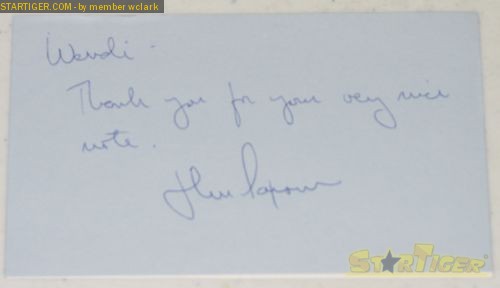 STARTIGER.COM - by member wclark
Wendi -
Thank you for your very nice
note.
STARTIGER